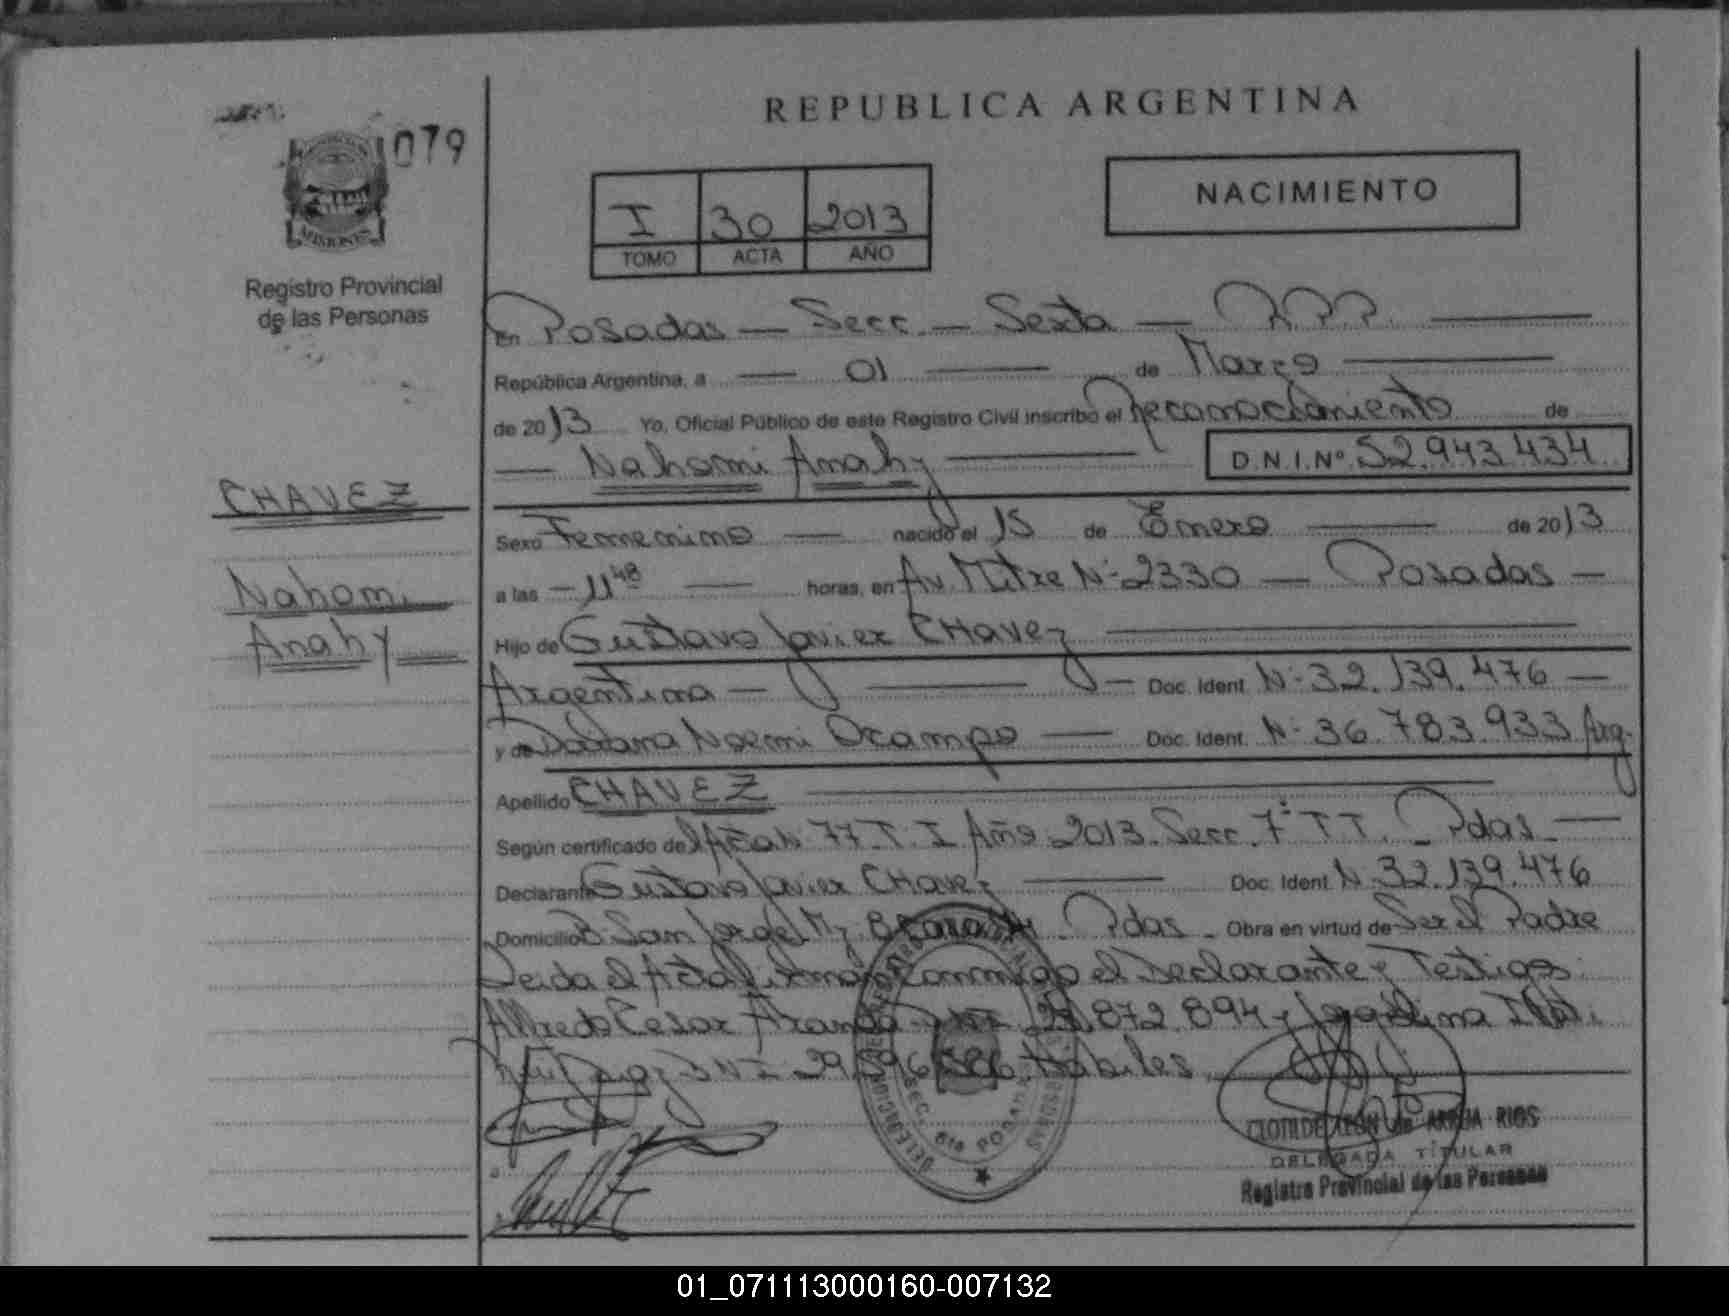 REPUBLICA ARGENTINA
079
MISIONES
Registro Provincial
de las Personas
I 30 2013
TOMO ACTA AÑO
NACIMIENTO
En Posadas — Secc — Sexta —
República Argentina, a — 01 — de Marzo —
de 2013 Yo, Oficial Público de este Registro Civil inscribo el Reconocimiento de
— Nahomi Anahy — D.N.I.Nº 52.943.434
CHAVEZ
Nahomi
Anahy
Sexo Femenino — nacido el 15 de Enero — de 2013
a las — 11 48 — horas, en Av. Mitre Nº 2330 — Posadas —
Hijo de Gustavo Javier CHavez —
Argentina — Doc. Ident. Nº 32.139.476 —
y de Noemi Ocampo — Doc. Ident. Nº 36.783.933 Arg.
Apellido CHAVEZ —
Según certificado del Acta Nº 77 T. I Año 2013. Secc. 7º T T. Pdas —
Declarante Gustavo Javier CHavez — Doc. Ident. Nº 32.139.476
Domicilio Bº San Jorge Pdas - Obra en virtud de Ser el Padre
Leida el Acta firman conmigo el Declarante y Testigos
Alfredo Cesar 872.894 y
DNI 29 Habiles
DELEGACION
SEC. 6ta POSADAS
CLOTILDE RIOS
DELEGADA TITULAR
Registro Provincial de las Personas
01_071113000160-007132